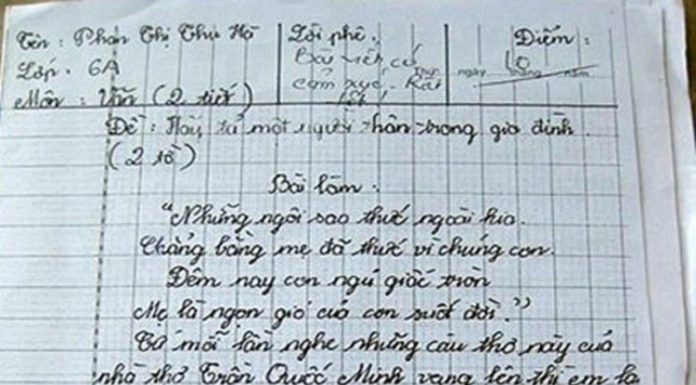 Tên : Phan Thị Thu Hà
Lời phê.
Điểm :
Lớp . 6A
Bài viết có
10
cảm xúc. Rất
Thứ ngày tháng năm
Môn : Văn (2 tiết)
tốt!
Đề : Hãy tả một người thân trong gia đình.
(2 tờ)
Bài làm :
"Những ngôi sao thức ngoài kia.
Chẳng bằng mẹ đã thức vì chúng con.
Đêm nay con ngủ giấc tròn
Mẹ là ngọn gió của con suốt đời."
Cứ mỗi lần nghe những câu thơ này của
nhà thơ Trần Quốc Minh vang lên thì em là